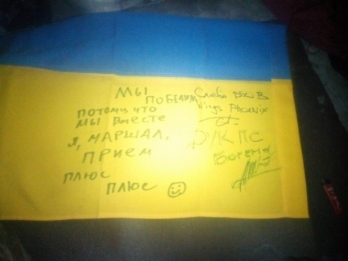 МЫ
ПОБЕДИМ
ПОТОМУ ЧТО
МЫ ВМЕСТЕ
Я, МАРШАЛ,
ПРИЕМ
ПЛЮС
ПЛЮС
Слава
Kings Phoenix
РЖПС